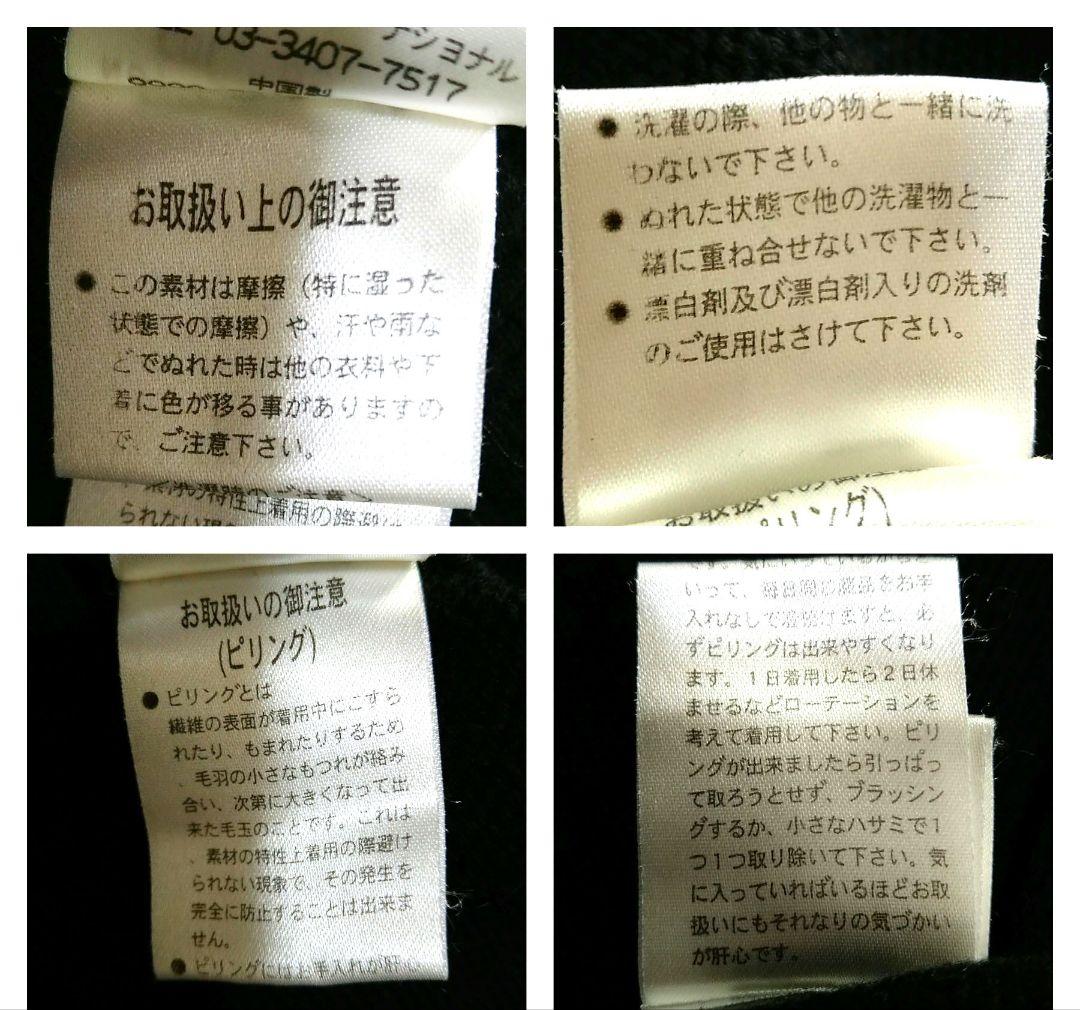 ナショナル
03-3407-7517
中国製
お取扱い上の御注意
● この素材は摩擦（特に湿った
状態での摩擦）や、汗や雨な
どでぬれた時は他の衣料や下
着に色が移る事がありますの
で、ご注意下さい。
られない現
● 洗濯の際、他の物と一緒に洗
わないで下さい。
● ぬれた状態で他の洗濯物と一
緒に重ね合せないで下さい。
● 漂白剤及び漂白剤入りの洗剤
のご使用はさけて下さい。
お取扱いの御注意
ピリング)
お取扱いの御注意
(ピリング)
● ピリングとは
繊維の表面が着用中にこすら
れたり、もまれたりするため
、毛羽の小さなもつれが絡み
合い、次第に大きくなって出
来た毛玉のことです。これは
、素材の特性上着用の際避け
られない現象で、その発生を
完全に防止することは出来ま
せん。
● ピリングにはお手入れが肝心
いって、毎日同じ製品をお手
入れなしで着続けますと、必
ずピリングは出来やすくなり
ます。１日着用したら２日休
ませるなどローテーションを
考えて着用して下さい。ピリ
ングが出来ましたら引っぱっ
て取ろうとせず、ブラッシン
グするか、小さなハサミで１
つ１つ取り除いて下さい。気
に入っていればいるほどお取
扱いにもそれなりの気づかい
が肝心です。